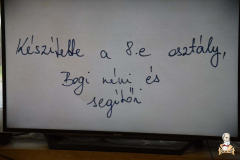 Készítette a 8.e osztály,
Bogi néni és
segítői